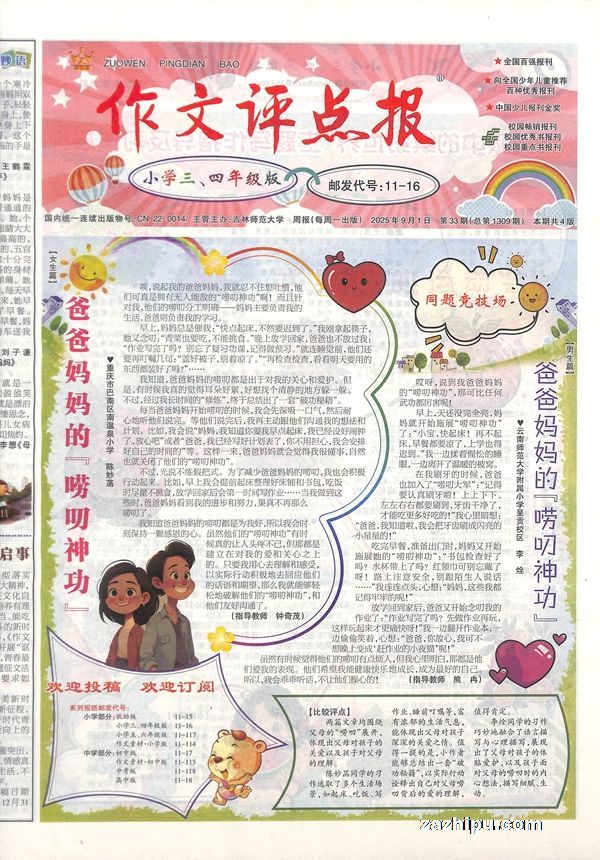 ZUOWEN PINGDIAN BAO
作文评点报
®
★全国百强报刊
★向全国少年儿童推荐
百种优秀报刊
★中国少儿报刊金奖
校园畅销报刊
校园优秀报刊
校园重点报刊
小学三、四年级版
邮发代号:11-16
国内统一连续出版物号:CN 22-0014/ 主管主办·吉林师范大学 周报(每周一出版) 2025年9月1日 第33期(总第1309期) 本期共4版
【女生篇】
爸爸妈妈的『唠叨神功』
♥重庆市巴南区南温泉小学 陈妙菡
唉,说起我的爸爸妈妈,我就忍不住想吐槽,他
们可真是拥有无人能敌的“唠叨神功”啊!而且针
对我,他们的唠叨分工明确——妈妈主要负责我的
生活,爸爸则负责我的学习。
早上,妈妈总是催我:“快点起床,不然要迟到了。”我刚拿起筷子,
她又念叨:“青菜也要吃,不能挑食。”晚上放学回家,爸爸也不放过我:
“作业写完了吗?别忘了复习功课,记得做预习。”就连睡觉前,他们还
要再叮嘱几句:“盖好被子,别着凉了。”“再检查检查,看看明天要用的
东西都装好了吗?”……
我知道,爸爸妈妈的唠叨都是出于对我的关心和爱护。但
是,有时候我真的觉得耳朵好累,好想找个清静的地方躲一躲。
不过,经过我长时间的“修炼”,终于总结出了一套“破功秘籍”。
每当爸爸妈妈开始唠叨的时候,我会先深吸一口气,然后耐
心地听他们说完。等他们说完后,我再主动跟他们沟通我的想法和
计划。比如,我会说:“妈妈,我知道你要我早点起床,我已经设好闹钟
了,放心吧”或者“爸爸,我已经写好计划表了,你不用担心,我会安排
好自己的时间的”等。这样一来,爸爸妈妈就会觉得我很懂事,自然
也就关闭了他们的“唠叨神功”。
不过,光说不练假把式。为了减少爸爸妈妈的唠叨,我也会积极
行动起来。比如,早上我会提前起床整理好床铺和书包,吃饭
时尽量不挑食,放学回家后会第一时间写作业……当我做到这
些时,爸爸妈妈看到我的进步和努力,果真不再那么
唠叨了。
我知道爸爸妈妈的唠叨都是为我好,所以我会时
刻保持一颗感恩的心。虽然他们的“唠叨神功”有时
候真的让人头疼不已,但那都是
建立在对我的爱和关心之上
的。只要我用心去理解和感受,
以实际行动积极地去回应他们
的话语和期望,那么我就能够轻
松地破解他们的“唠叨神功”,和
他们友好沟通了。
(指导教师 钟奇茂)
同题竞技场
【男生篇】
爸爸妈妈的『唠叨神功』
♥云南师范大学附属小学呈贡校区 李烇
哎呀,说到我爸爸妈妈
的“唠叨神功”,那可比任何
武功都厉害呢!
早上,天还没完全亮,妈妈
就开始施展“唠叨神功”
了:“小宝,快起床!再不起
床,早餐都要凉了,上学也得
迟到。”我一边揉着惺忪的睡
眼,一边离开了温暖的被窝。
在我刷牙的时候,爸爸
也加入了“唠叨大军”:“记得
要认真刷牙啊!上上下下、
左左右右都要刷到,牙齿干净了,
才能吃更多好吃的!”我心里暗想:
“爸爸,我知道啦,我会把牙齿刷成闪亮的
小星星的!”
吃完早餐,准备出门时,妈妈又开始
施展她的“唠叨神功”:“书包检查好了
吗?水杯带上了吗?红领巾可别忘戴了
呀!路上注意安全,别跟陌生人说话
……”我连连点头,心想:“妈妈,这些我都
记得牢牢的呢!”
放学回到家后,爸爸又开始念叨我的
作业了:“作业写完了吗?先做作业再玩,
这样玩起来才更痛快呀!”我一边翻开作业本,一
边偷偷笑着,心想:“爸爸,你放心,我可不
想晚上变成‘赶作业的小夜猫’呢!”
虽然有时候觉得他们的唠叨有点烦人,但我心里明白,那都是他
们爱我的表现。他们希望我能健康快乐地成长,成为最好的自己。
所以,我会乖乖听话,不让他们操心的!
(指导教师 熊冉)
欢迎投稿 欢迎订阅
系列报纸邮发代号:
小学部分:低幼版 11-15
小学三、四年级版 11-16
小学五、六年级版 11-117
作文素材·小学版 11-114
中学部分:初中版 11-17
作文素材·初中版 11-115
中考版 11-118
高中版 11-18
【比较评点】
两篇文章均围绕
父母的“唠叨”展开,
体现出父母对孩子的
关爱以及孩子对父母
的理解。
陈妙菡同学的习
作选取了多个生活场
景,如起床、吃饭、写
作业、睡前叮嘱等,富
有浓郁的生活气息,
能体现出父母对孩子
深深的关爱之情。值
得一提的是,小作者
能够总结出一套“破
功秘籍”,以实际行动
诠释出自己对父母唠
叨背后的爱的理解,
值得肯定。
李烇同学的习作
巧妙地融合了语言描
写与心理描写,展现
出了父母对孩子的体
贴爱护,以及孩子面
对父母的唠叨时的内
心想法,描写细腻、生
动。
zazhipu.com